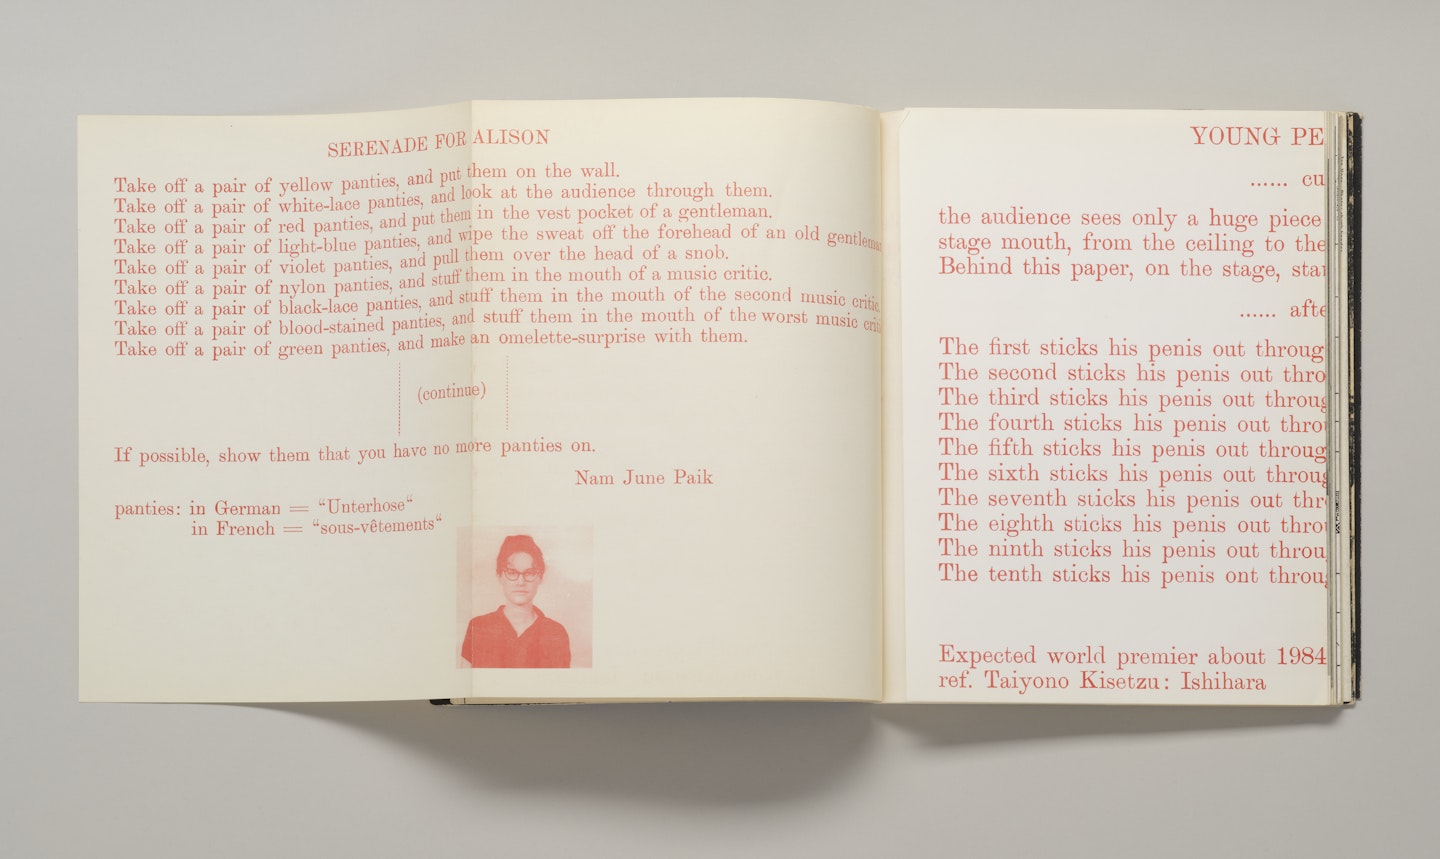 SERENADE FOR ALISON
Take off a pair of yellow panties, and put them on the wall.
Take off a pair of white-lace panties, and look at the audience through them.
Take off a pair of red panties, and put them in the vest pocket of a gentleman.
Take off a pair of light-blue panties, and wipe the sweat off the forehead of an old gentleman
Take off a pair of violet panties, and pull them over the head of a snob.
Take off a pair of nylon panties, and stuff them in the mouth of a music critic.
Take off a pair of black-lace panties, and stuff them in the mouth of the second music critic.
Take off a pair of blood-stained panties, and stuff them in the mouth of the worst music criti
Take off a pair of green panties, and make an omelette-surprise with them.
(continue)
If possible, show them that you have no more panties on.
Nam June Paik
panties: in German = “Unterhose“
in French = “sous-vêtements“
YOUNG PE
...... cu
the audience sees only a huge piece
stage mouth, from the ceiling to the
Behind this paper, on the stage, star
...... afte
The first sticks his penis out throug
The second sticks his penis out thro
The third sticks his penis out throug
The fourth sticks his penis out throu
The fifth sticks his penis out throug
The sixth sticks his penis out throug
The seventh sticks his penis out thr
The eighth sticks his penis out throu
The ninth sticks his penis out throu
The tenth sticks his penis ont throug
Expected world premier about 1984
ref. Taiyono Kisetzu: Ishihara